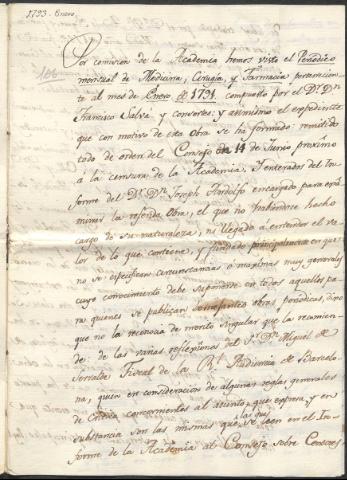 1793. Enero.
106
Por comision de la Academia hemos visto el Periodico
mensual de Medicina, Cirugia, y Farmacia pertenecien-
te al mes de Enero de 1791. compuesto por el Dr. Dn.
Francisco Salvá, y consortes: y asimismo el expediente
que con motivo de esta obra se ha formado: remitido
todo de orden del Consejo en 14 de Junio proximo
á la censura de la Academia. Y enterados del In-
forme del Dr. Dn. Joseph encargado para exâ-
minar la referida obra, el que no habiendose hecho
cargo de su naturaleza, ni llegado á entender el va-
lor de lo que contiene, y fundado principalmente en que
no se especifiquen circunstancias ó maximas muy generales
cuyo conocimiento debe suponerse en todos aquellos pa-
ra quienes se publican semejantes obras periodicas, dixo
que no la reconocia de merito singular que la recomien-
de: de las varias reflexiones del Sr. Dn. Miguel de
Serralde Fiscal de la Rl. Audiencia de Barcelo-
na, quien en consideracion de algunas reglas generales
de Critica concernientes al asunto, que expresa, y en
substancia son las mismas que las que se leen en el In-
forme de la Academia al Consejo sobre